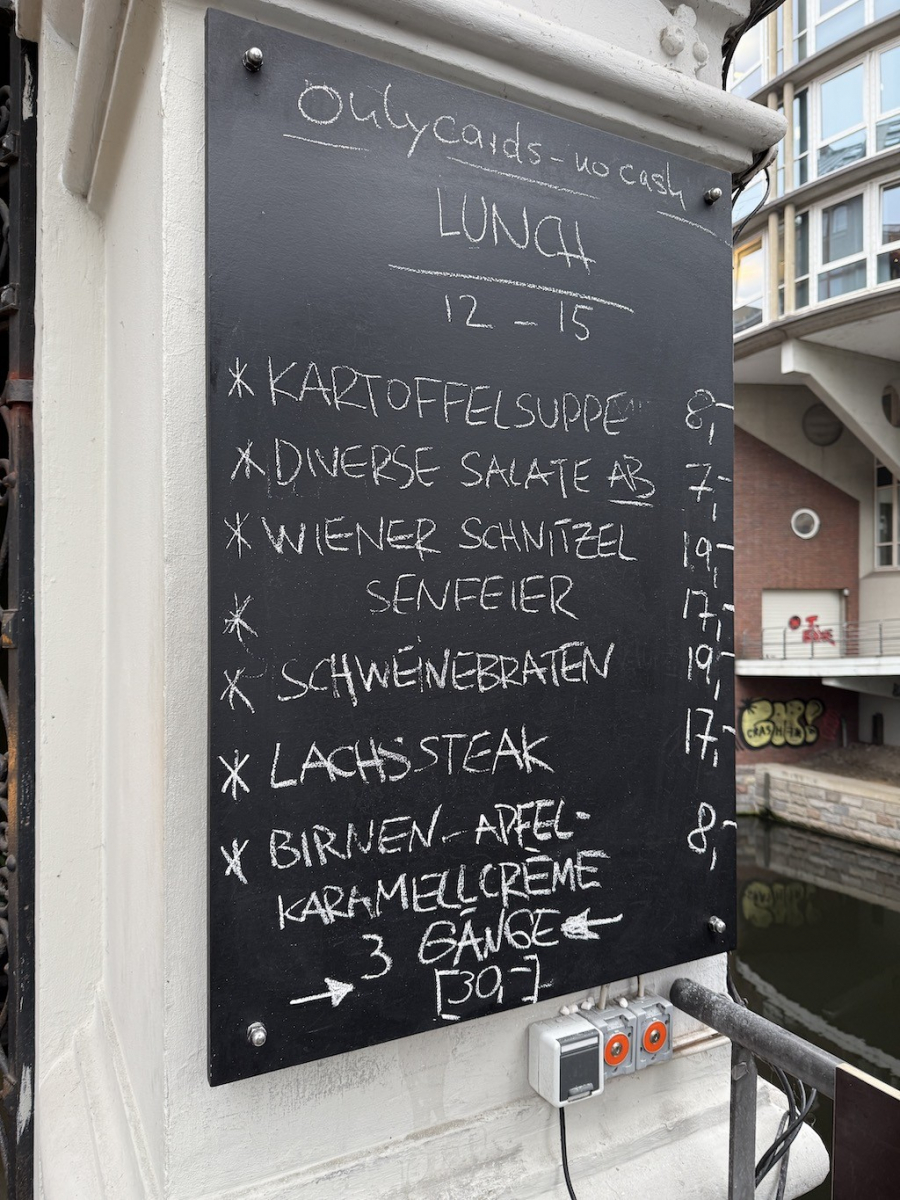 Only cards - no cash
LUNCH
12 - 15
* KARTOFFELSUPPE 8,-
* DIVERSE SALATE AB 7,-
* WIENER SCHNITZEL 19,-
* SENFEIER 17,-
* SCHWEINEBRATEN 19,-
* LACHSSTEAK 17,-
* BIRNEN-APFEL- 8,-
KARAMELLCRÈME
3 GÄNGE ←
→ [30,-]